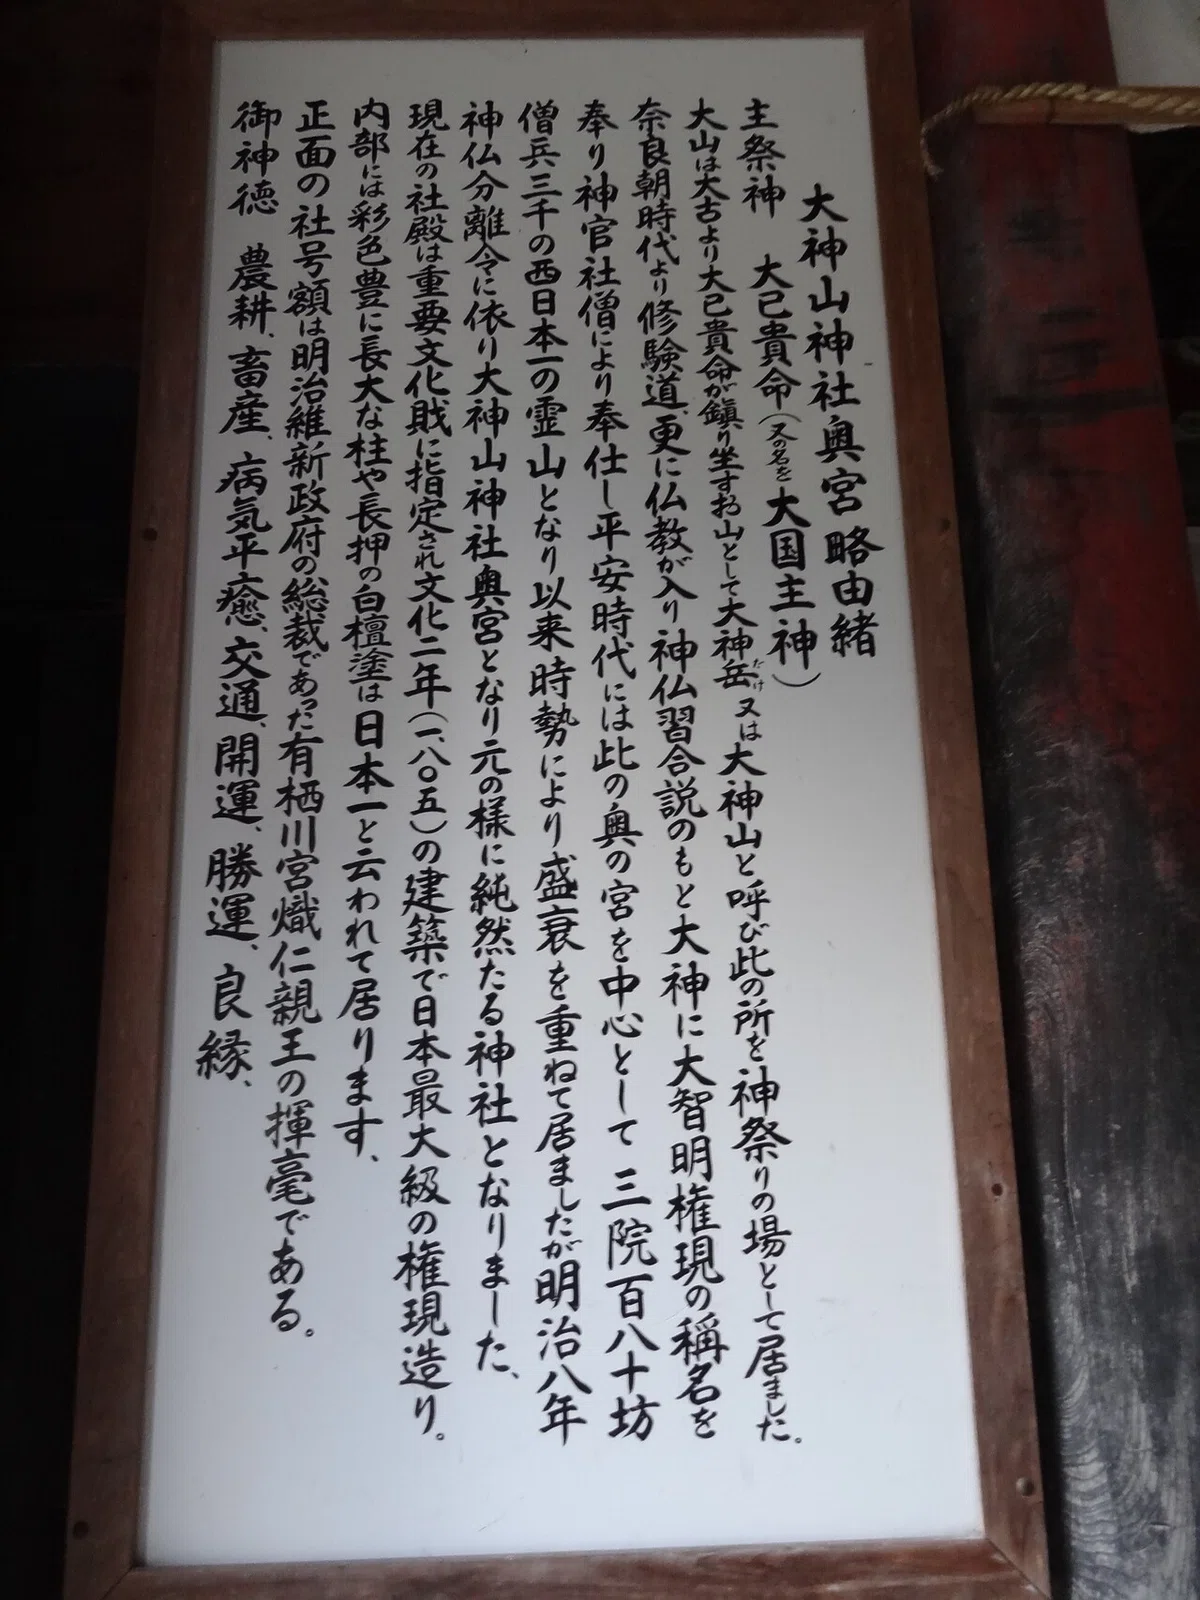 大神山神社奥宮略由緒
主祭神 大己貴命(又の名を大国主神)
大山は太古より大己貴命が鎮り坐すお山として大神岳又は大神山と呼び此の所を神祭りの場として居ました。
奈良朝時代より修験道、更に仏教が入り神仏習合説のもと大神に大智明権現の稱名を
奉り神官社僧により奉仕し平安時代には此の奥の宮を中心として三院百八十坊
僧兵三千の西日本一の霊山となり以来時勢により盛衰を重ねて居ましたが明治八年
神仏分離令に依り大神山神社奥宮となり元の様に純然たる神社となりました、
現在の社殿は重要文化財に指定され文化二年(一、八〇五)の建築で日本最大級の権現造り。
内部には彩色豊に長大な柱や長押の白檀塗は日本一と云われて居ります、
正面の社号額は明治維新政府の総裁であった有栖川宮熾仁親王の揮毫である。
御神徳 農耕、畜産、病気平癒、交通、開運、勝運、良縁、
たけ